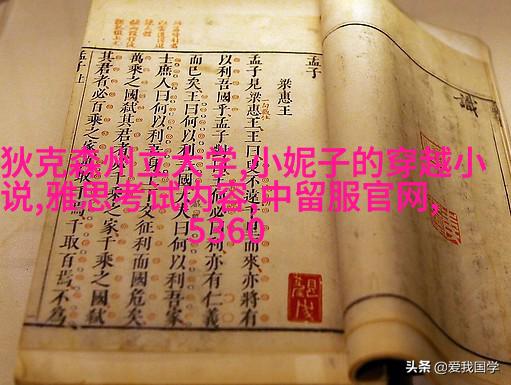 狄克森州立大学,小妮子的穿越小
说,雅思考试内容,中留服官网,
5360
識
孟子
梁惠王
孟子見梁惠王王曰叟不遠千里而來亦將有
以利吾國乎孟子對曰王何必曰利亦有仁義
而已矣王曰何以利吾國大夫曰何以利吾家
士庶人曰何以利吾身上下交征利而國危矣
萬乘之國弑其君者必千乘之家千乘之國弑
其君者必百乘之家萬取千焉千取百焉不爲
孟子上
头条 @爱我国学